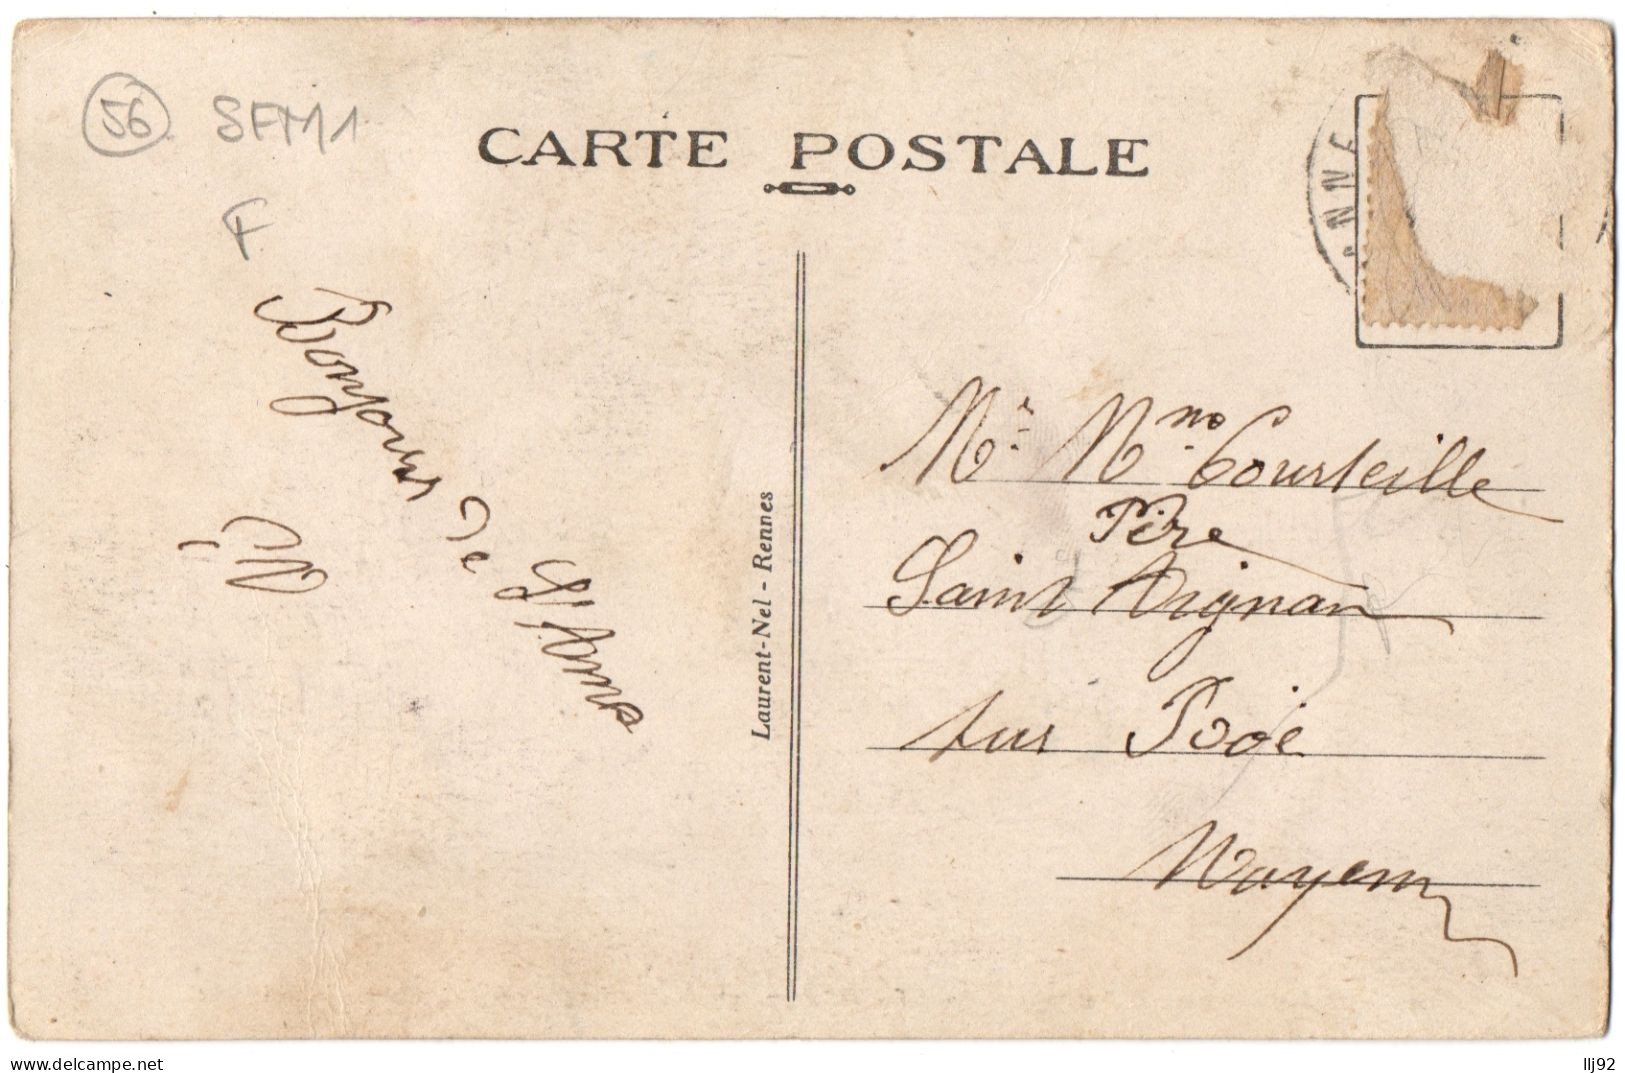 56 SFM1
CARTE POSTALE
F
NNE
Bonjour de
St Anne
Laurent-Nel - Rennes
Mr Mme Courteille
Père
Saint Aignan
sur Roë
Mayenne
www.delcampe.net
llj92